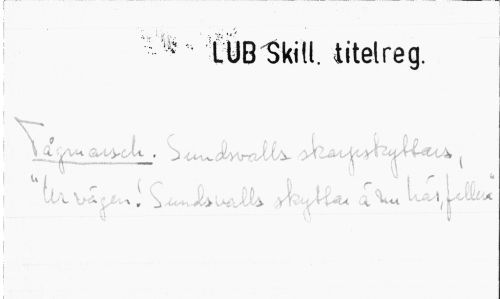 LUB Skill. titelreg.
Tågmarsch. Sundsvalls skarpskyttars,
"Ur vägen! Sundsvalls skyttar ä nu här,